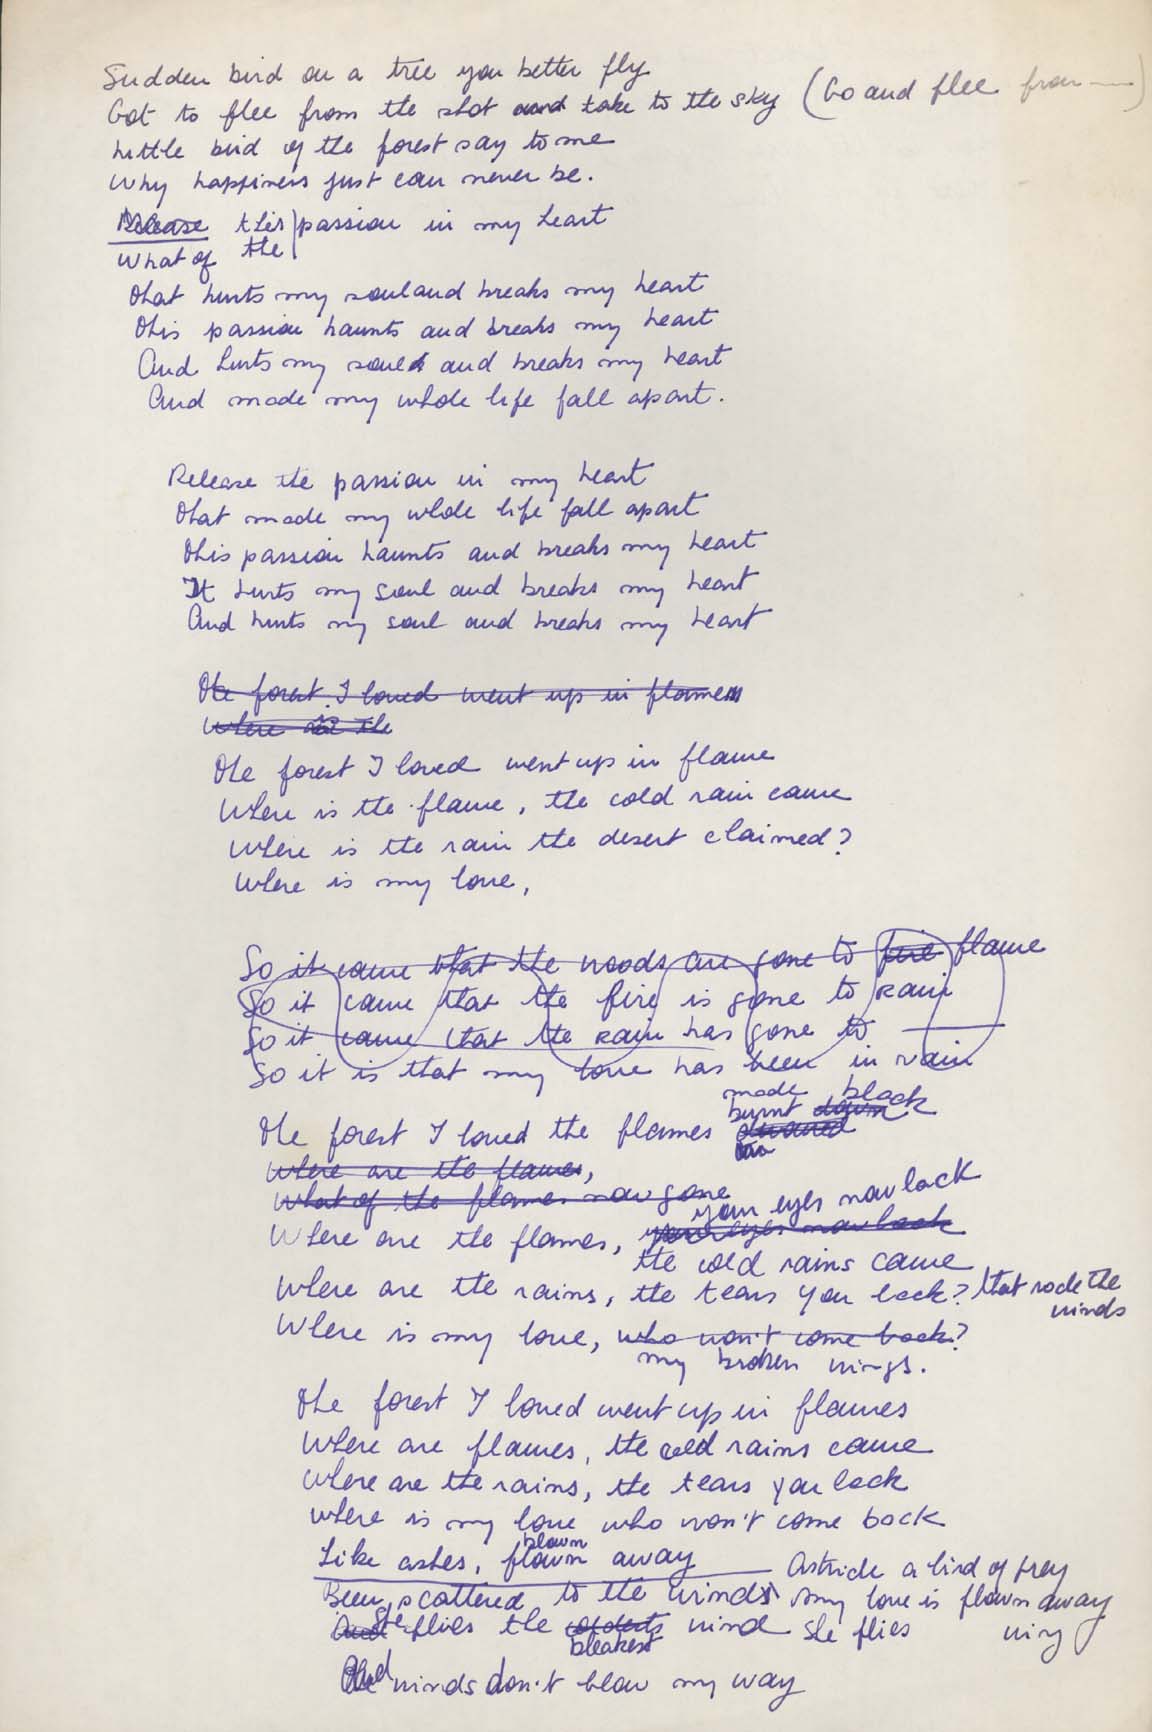 Sudden bird on a tree you better fly
Got to flee from the shot and take to the sky (Go and flee from —)
Little bird of the forest say to me
Why happiness just can never be.
Release this passion in my heart
What of the
That hurts my soul and breaks my heart
This passion haunts and breaks my heart
And hurts my soul and breaks my heart
And made my whole life fall apart.
Release the passion in my heart
That made my whole life fall apart
This passion haunts and breaks my heart
It hurts my soul and breaks my heart
And hurts my soul and breaks my heart
The forest I loved went up in flames
Where is the
The forest I loved went up in flame
Where is the flame, the cold rain came
Where is the rain the desert claimed?
Where is my love,
So it came that the woods are gone to fire flame
So it came that the fire is gone to rain
So it came that the rain has gone to —
So it is that my love has been in vain
made black
burnt down
The forest I loved the flames
Where are the flames,
What of the flames now gone
your eyes now lack
Where are the flames, your eyes now lack
the cold rains came
Where are the rains, the tears you lack? that rode the
winds
Where is my love, who won't come back?
my broken wings.
The forest I loved went up in flames
Where are flames, the cold rains came
Where are the rains, the tears you lack
Where is my love who won't come back
blown
Like ashes, flown away — Astride a bird of prey
Been scattered to the winds my love is flown away
And she flies the coldests wind She flies wing
bleakest
And winds don't blow my way